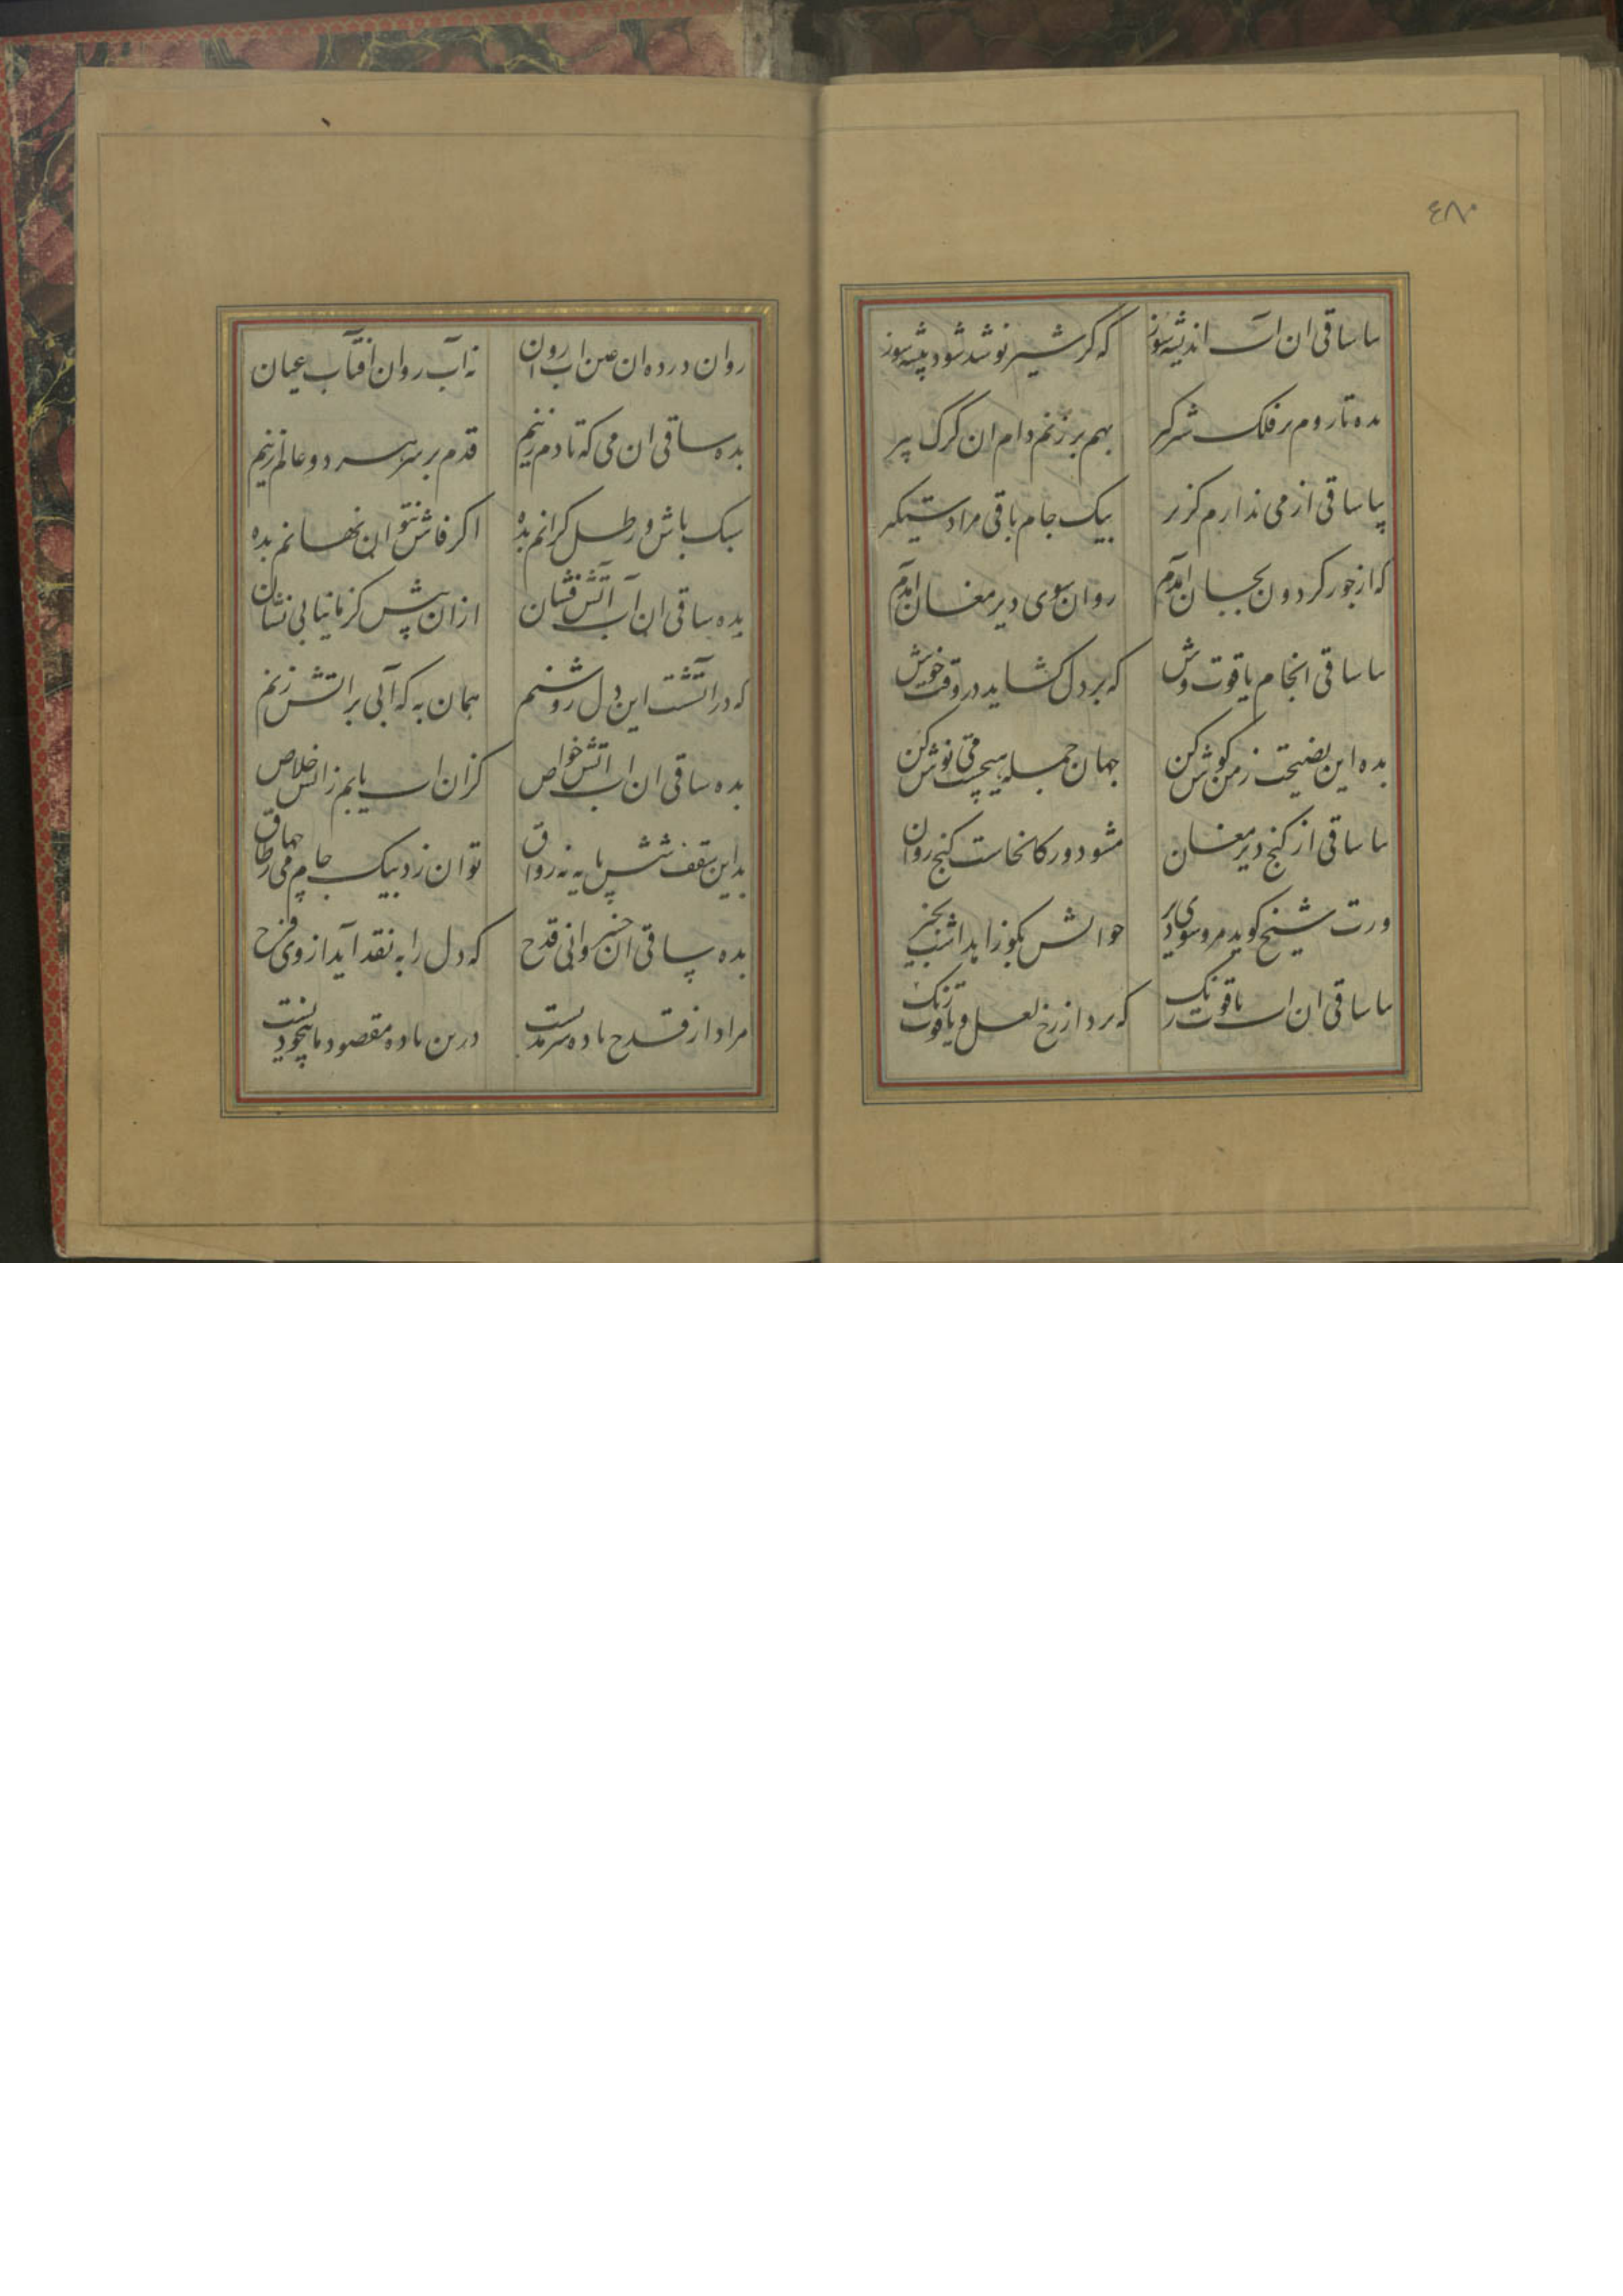 ٤٨٠
بیا ساقی ان اب اندیشه سوز که کر شیر نوشد شود بیشه سوز
بده تا روم بر فلک شیر کیر بهم بر زنم دام ان کرک پیر
بیا ساقی از می ندارم کزر بیک جام باقی مرا دستیکر
که از جور کردون بجان امدم روان سوی دیر مغان امدم
بیا ساقی انجام یاقوت وش که بر دل کشاید در وقت خوش
بده این نصیحت ز من کوش کن جهان جمله هیچست می نوش کن
بیا ساقی از کنج دیر مغان مشو دور کانجاست کنج روان
ورت شیخ کوید مرو سوی دیر جوابش بکو زاهد اشب بخیر
بیا ساقی ان اب یاقوت رنک که برد از رخ لعل و یاقوت زنک
روان در ده ان عین اب روان نه آب روان افتاب عیان
بده ساقی ان می که تا دم زنیم قدم بر سر هر دو عالم زنیم
سبک باش و رطل کرانم بده اکر فاش نتوان نهانم بده
بده ساقی ان آب آتش فشان ازان پیش کز ما نیابی نشان
که در اتشست این دل روشنم همان به که آبی بر اتش زنم
بده ساقی ان اب اتش خواص کزان اب یابم ز اتش خلاص
بدین سقف شش پایه نه رواق توان زد بیک جام می چهار طاق
بده ساقی ان خسروانی قدح که دل را به نقد آید از وی فرح
مراد از قدح باده سرمدیست درین باده مقصود ما بیخودیست